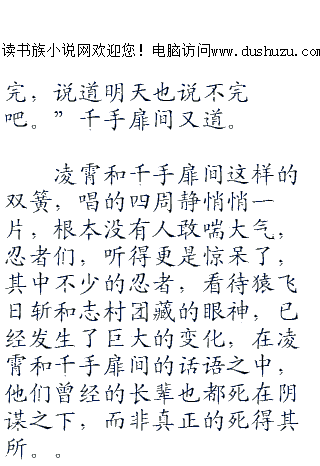 读书族小说网欢迎您！电脑访问www.dushuzu.com
完，说道明天也说不完
吧。”千手扉间又道。
凌霄和千手扉间这样的
双簧，唱的四周静悄悄一
片，根本没有人敢喘大气，
忍者们，听得更是惊呆了，
其中不少的忍者，看待猿飞
日斩和志村团藏的眼神，已
经发生了巨大的变化，在凌
霄和千手扉间的话语之中，
他们曾经的长辈也都死在阴
谋之下，而非真正的死得其
所。。